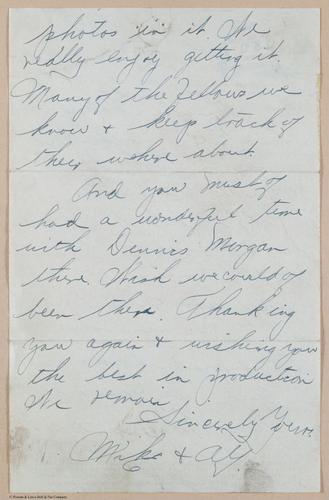 photos in it. We
really enjoy getting it.
Many of the Fellows we
know + keep track of
their where about.
And you must of
had a wonderful time
with Dennis Morgan
there. Wish we could of
been there. Thanking
you again + wishing you
the best in production
We remain
Sincerely Yours
Mike + Al.